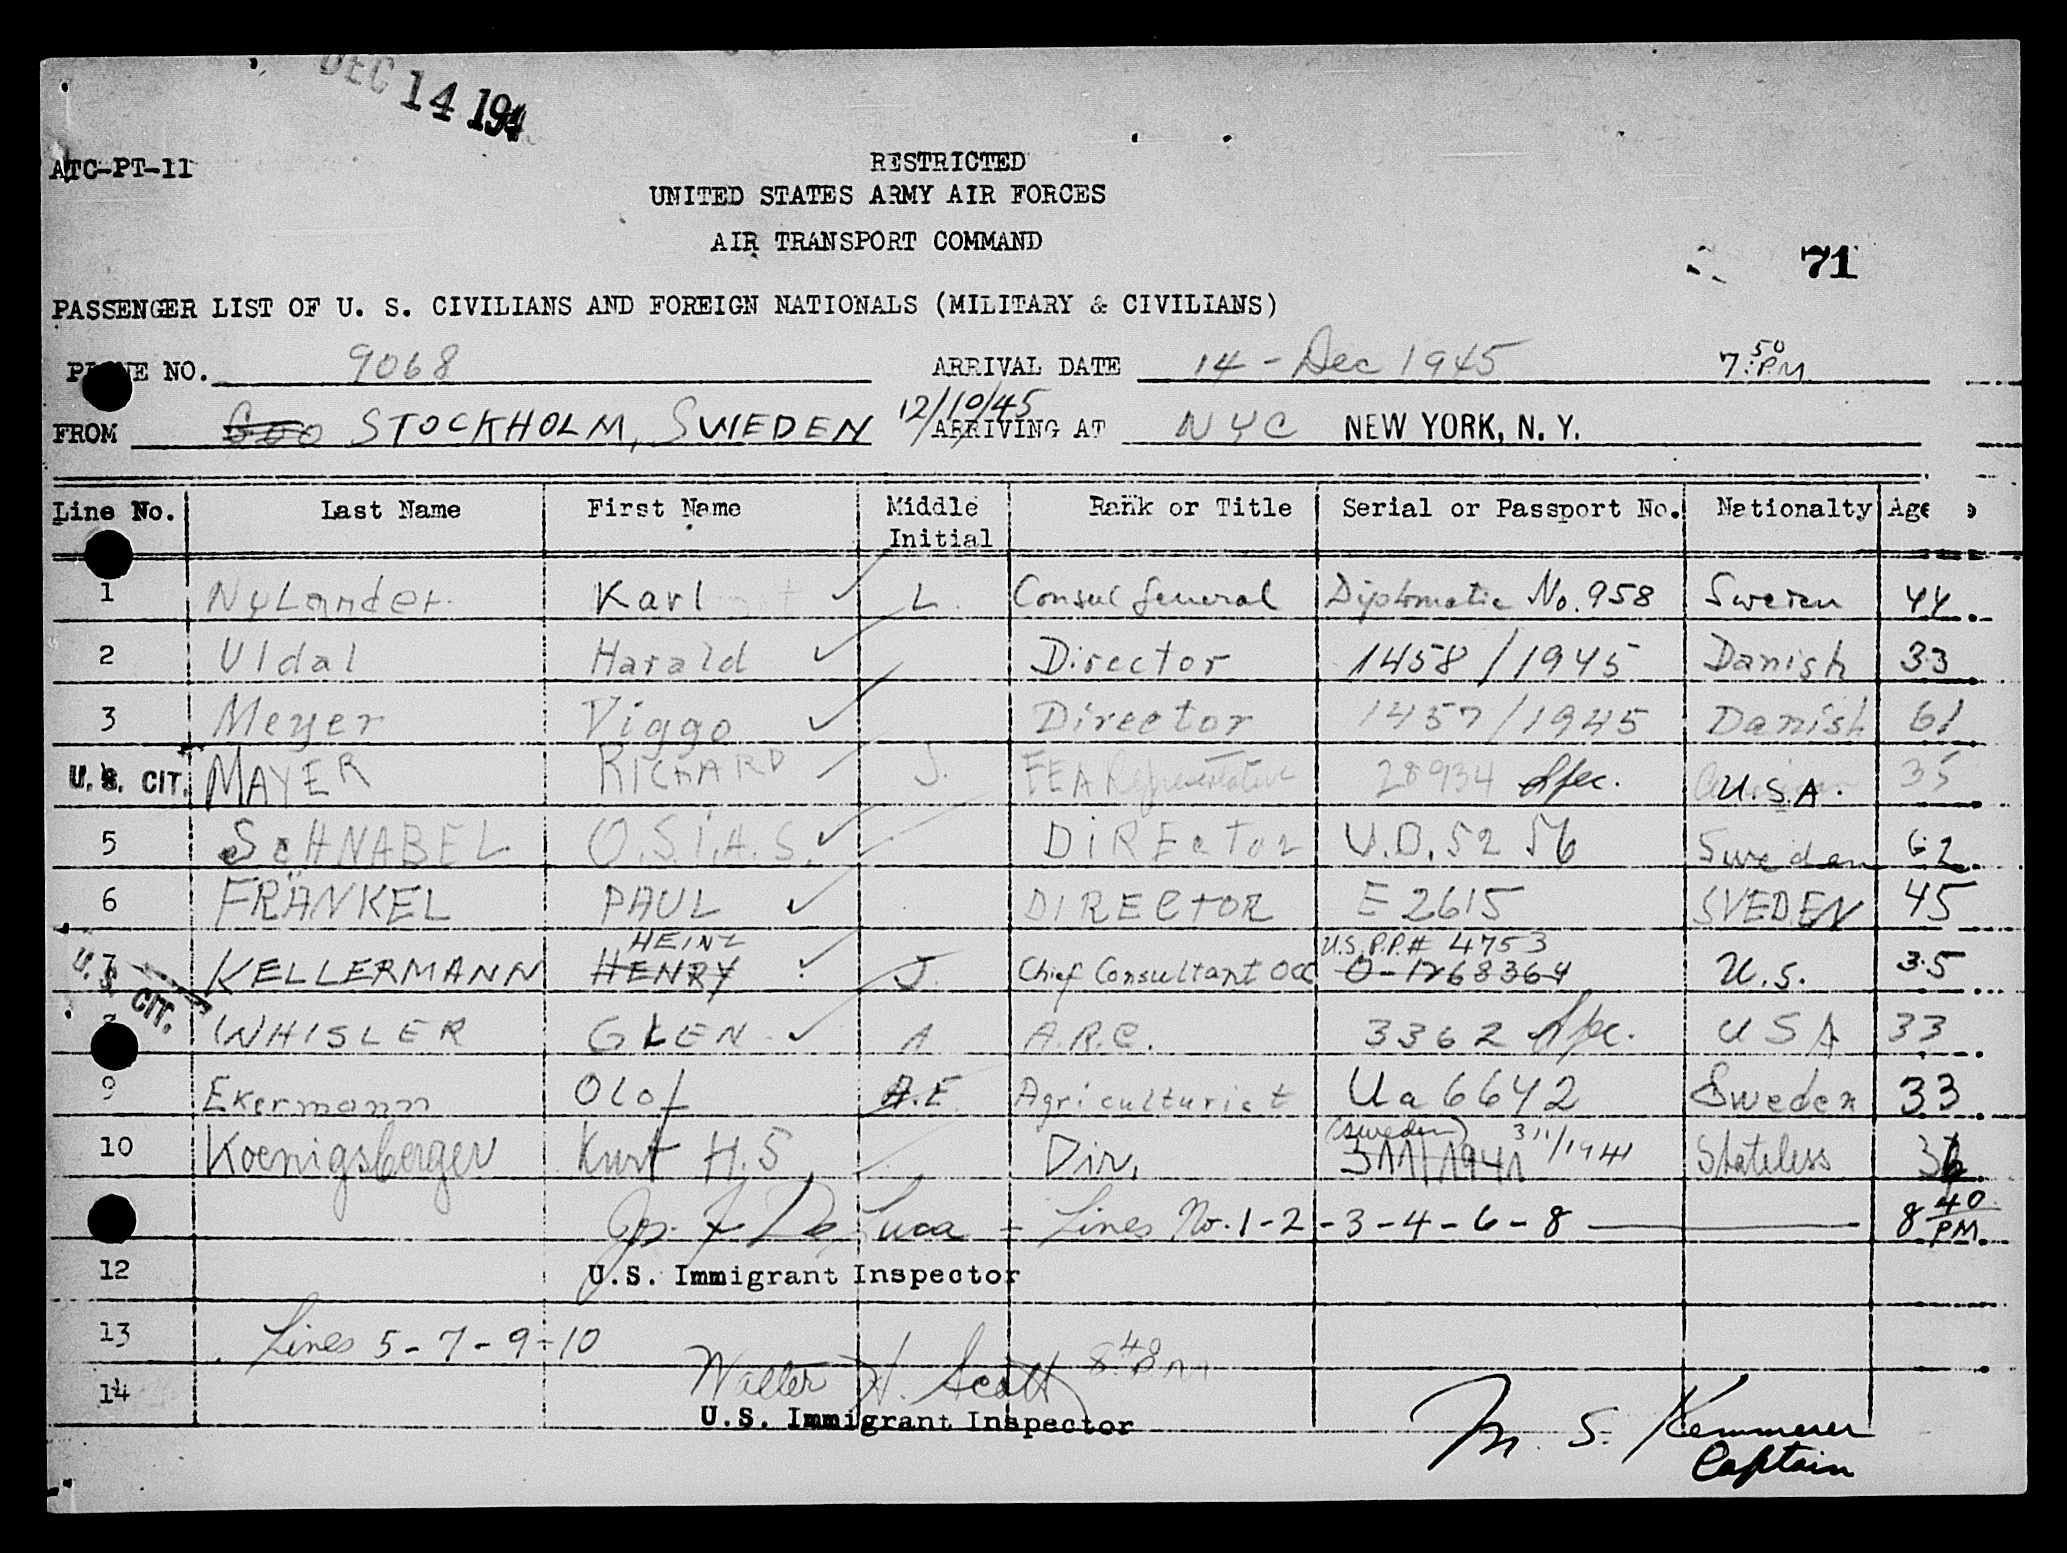 DEC 14 194
ATC-PT-11
RESTRICTED
UNITED STATES ARMY AIR FORCES
AIR TRANSPORT COMMAND
71
PASSENGER LIST OF U. S. CIVILIANS AND FOREIGN NATIONALS (MILITARY & CIVILIANS)
NO. 9068 ARRIVAL DATE 14 - Dec 1945 7:50 PM
FROM STOCKHOLM, SWEDEN 12/10/45 ARRIVING AT NYC NEW YORK, N. Y.
Line No. Last Name First Name Middle Initial Rank or Title Serial or Passport No. Nationalty Age
1 NyLander Karl L. Consul General Diplomatic No. 958 Sweden 44
2 Uldal Harald Director 1458/1945 Danish 33
3 Meyer Viggo Director 1457/1945 Danish 61
U.S. CIT. MAYER RICHARD J. FEA Representative 28934 Spec. U.S.A. 35
5 SCHNABEL O.S.I.A.S. DIRECTOR U.D. 52 56 Sweden 62
6 FRÄNKEL PAUL DIRECTOR E 2615 SVEDEN 45
HEINZ U.S. P.P.# 4753
7 U.S. CIT. KELLERMANN HENRY J. Chief Consultant OCC O-1268364 U.S. 35
WHISLER GLEN A A.R.C. 3362 Spec. USA 33
9 Ekermann Olof A.E. Agriculturist Ua 6642 Sweden 33
(Sweden) 311/1941
10 Koenigsberger Kurt H.S. Dir. 311/1941 Stateless 36
Jos. F. De Luca - Lines No. 1-2-3-4-6-8 8 40 PM
12 U.S. Immigrant Inspector
13 Lines 5-7-9-10
Walter H. Scott 8:40 PM
14 U.S. Immigrant Inspector
M. S. Kemmerer
Captain